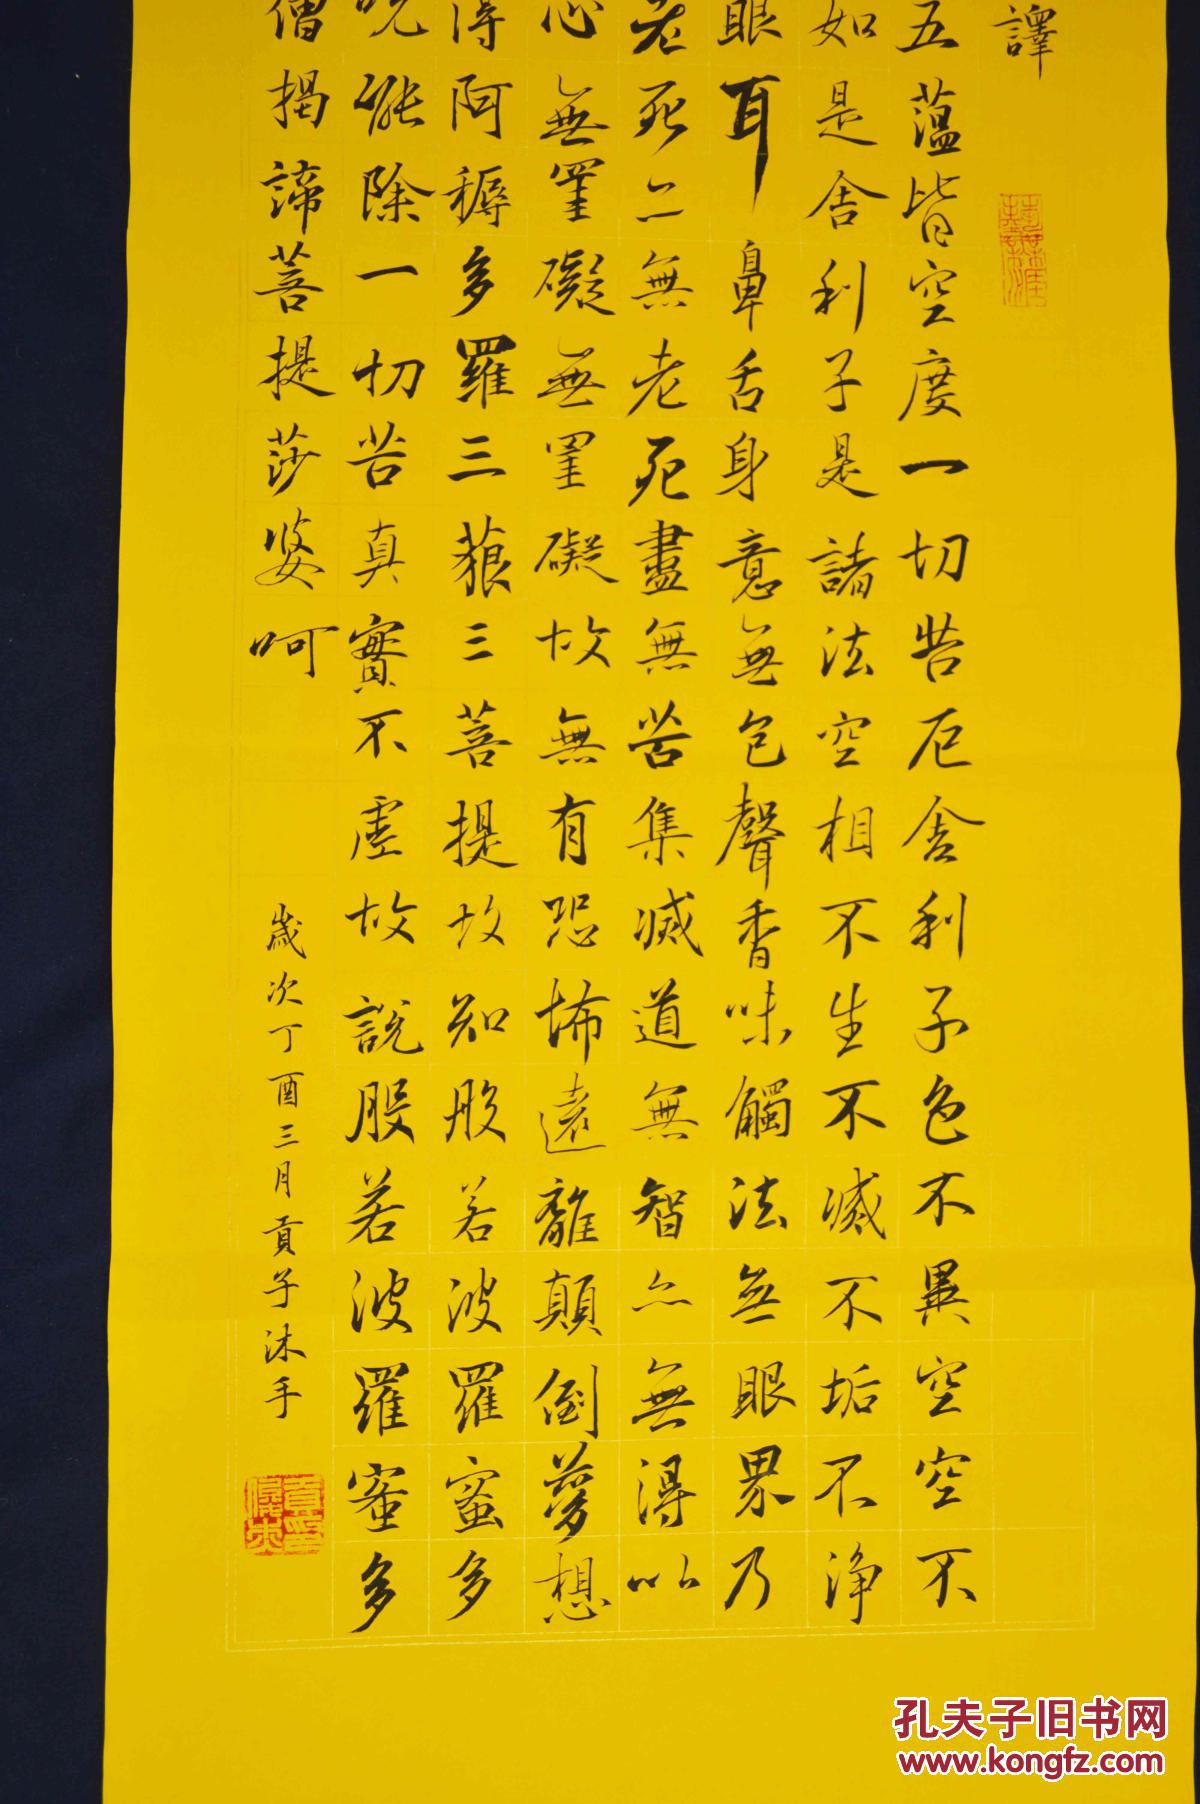 譯
五蘊皆空度一切苦厄舍利子色不異空空不
如是舍利子是諸法空相不生不滅不垢不淨
眼耳鼻舌身意無色聲香味觸法無眼界乃
老死亦無老死盡無苦集滅道無智亦無得以
心無罣礙無罣礙故無有恐怖遠離顛倒夢想
得阿耨多羅三藐三菩提故知般若波羅蜜多
咒能除一切苦真實不虛故說般若波羅蜜多
僧揭諦菩提莎婆呵
歲次丁酉三月貢子沐手
孔夫子旧书网
www.kongfz.com